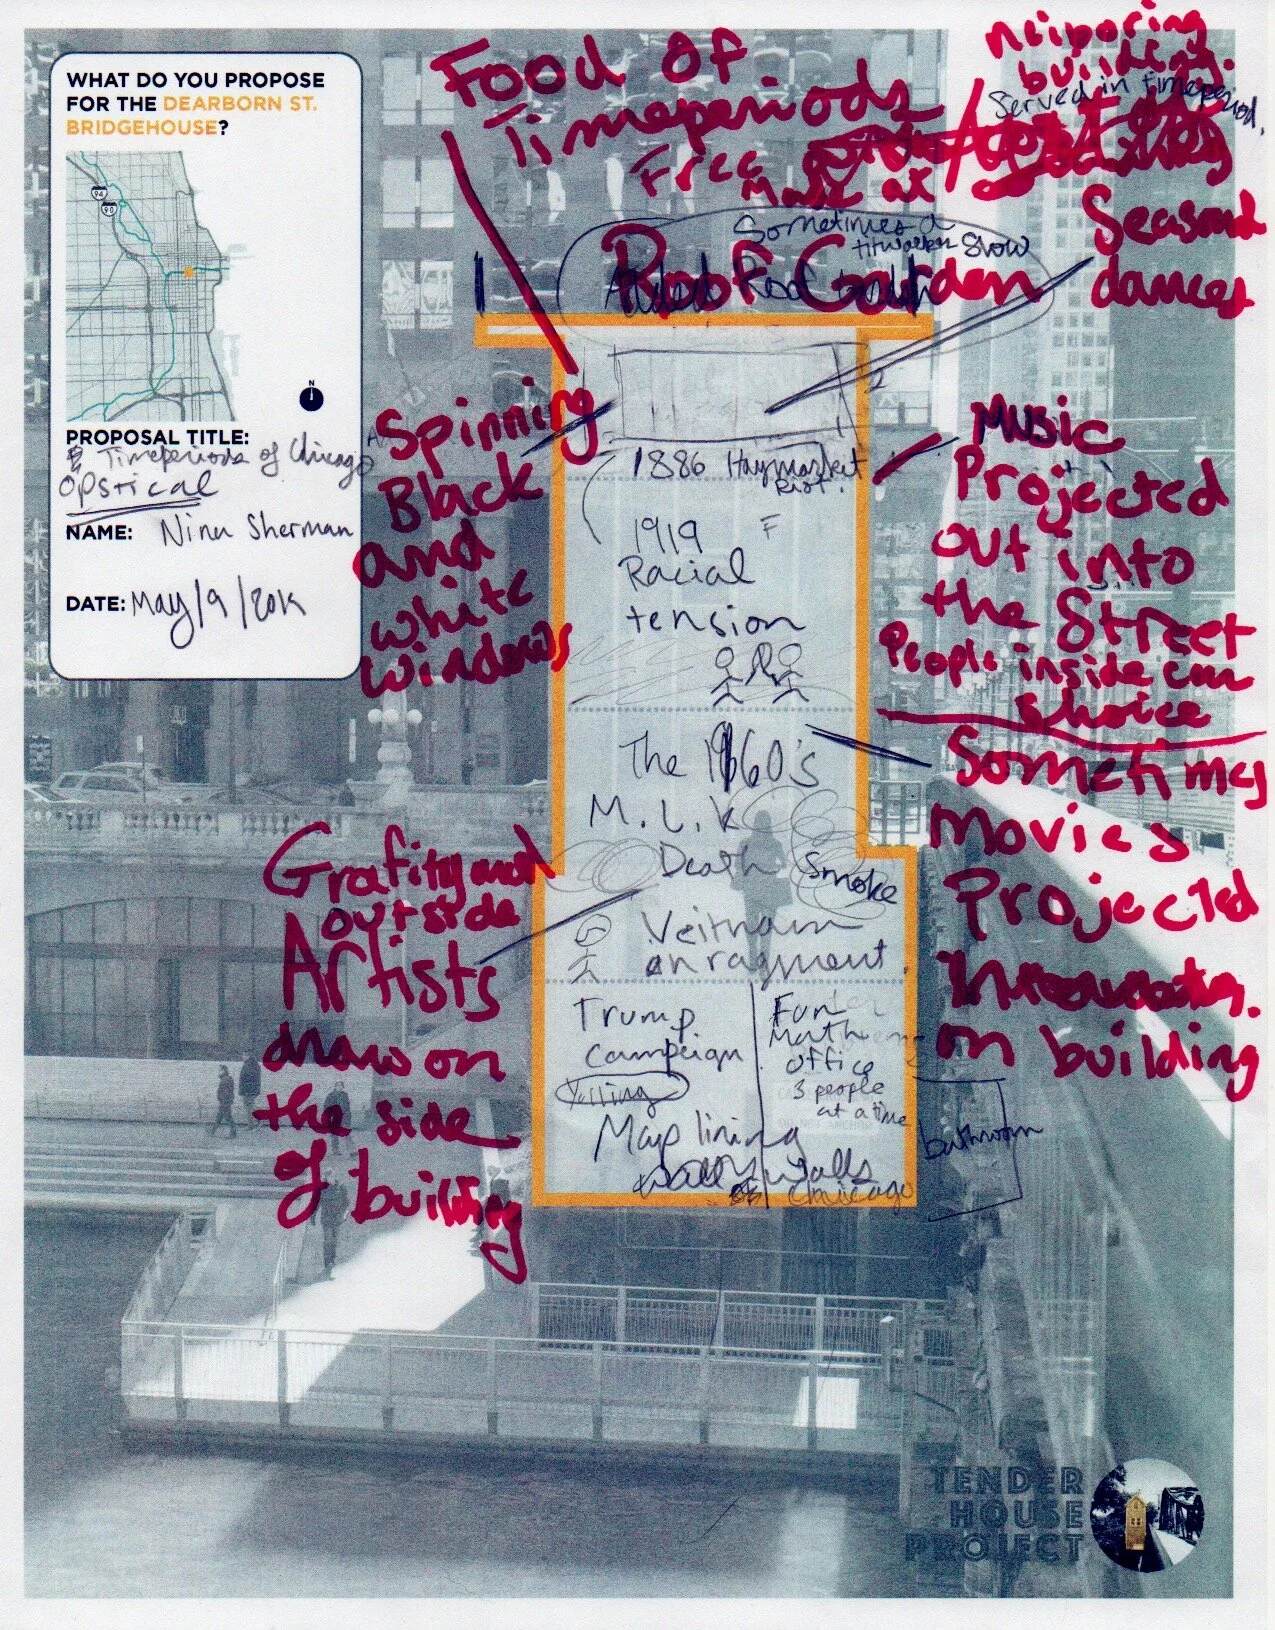 WHAT DO YOU PROPOSE
FOR THE DEARBORN ST.
BRIDGEHOUSE?
94
90
N
PROPOSAL TITLE:
Timeperiods of Chicago
Opstical
NAME: Nina Sherman
DATE: May/9/201
Food of
Timeperiods
Free
Music at
Neiboring
building.
Served in timeperiod.
Sometimes a
Show
Roof Garden
Seasonal
dances
Spinning
Black
and
white
windows
1886 Haymarket
Riot.
1919 F
Racial
tension
Music
Projected
out into
the Street
People inside can
choice
The 1960's
M.L.K
Death
Smoke
Veitnam
enragment.
Sometimes
Movies
Projected
on building
Grafity and
outside
Artists
draw on
the side
of building
Trump
campaign
Yelling
office
3 people
at a time
Map lining
walls
Chicago
bathroom
TENDER
HOUSE
PROJECT